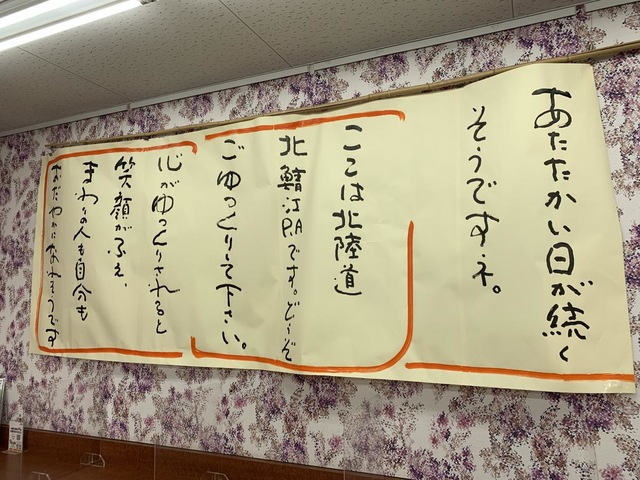 あたたかい日が続く
そうですネ。
ここは北陸道
北鯖江PAです。どうぞ
ごゆっくりして下さい。
心がゆっくりされると
笑顔がふえ、
まわりの人も自分も
おだやかになれそうです